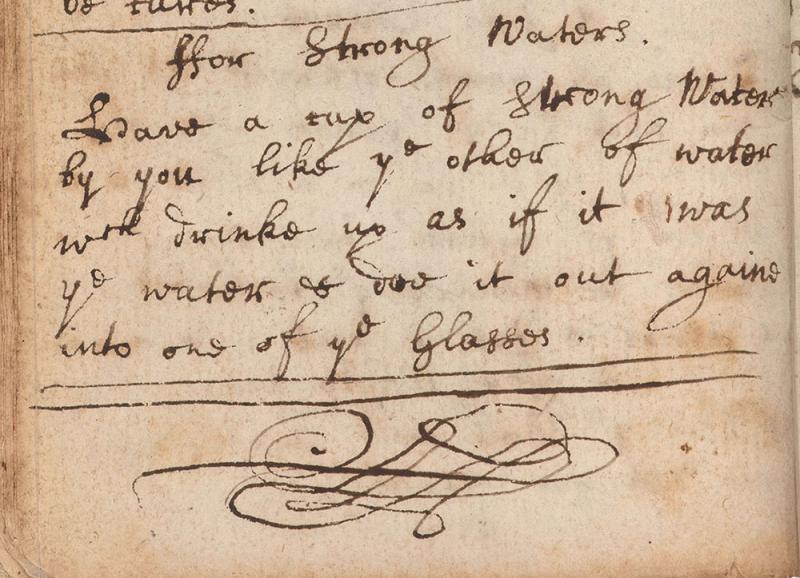 be cures.
ffor Strong Waters.
Have a cup of Strong Water
by you like yᵉ other of water
wᶜʰ drinke up as if it was
yᵉ water & doe it out againe
into one of yᵉ Glasses.